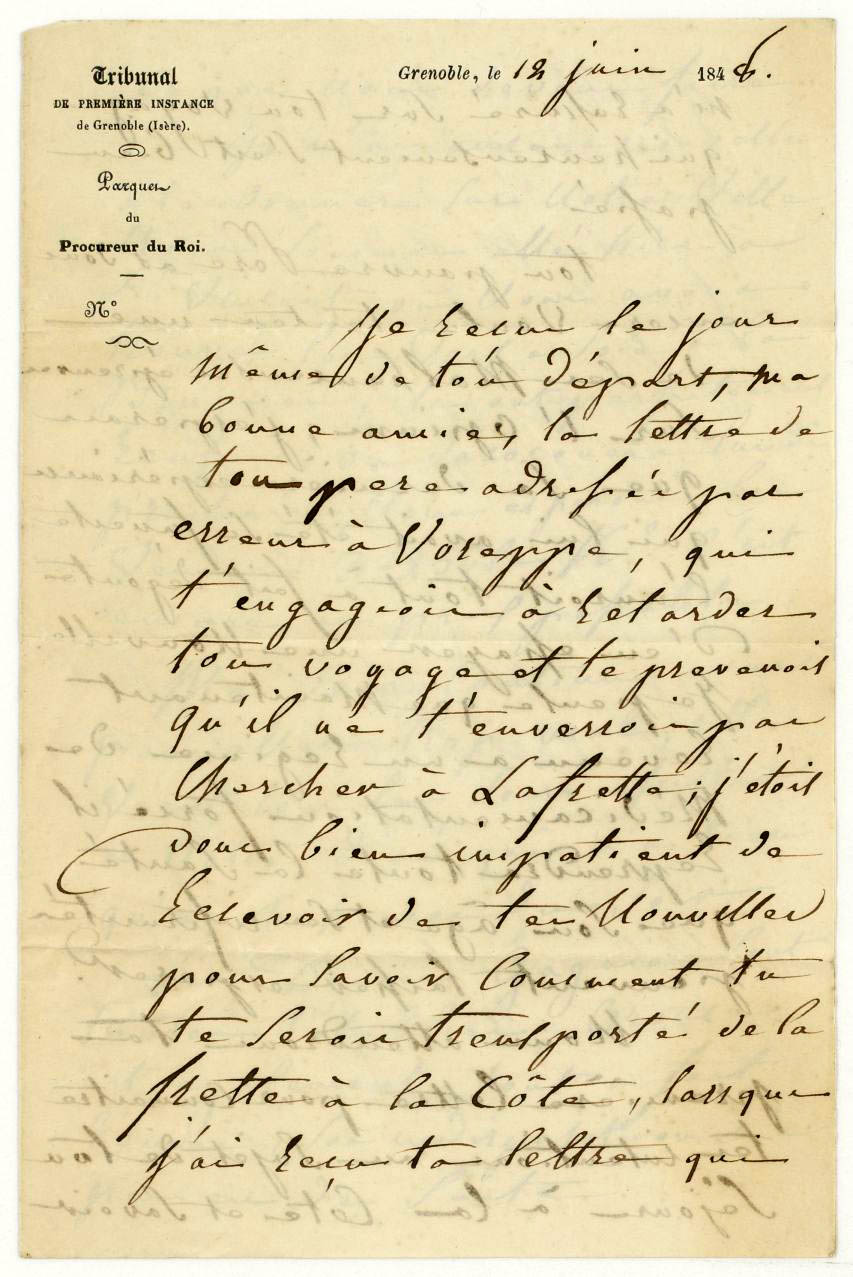 Tribunal
DE PREMIÈRE INSTANCE
de Grenoble (Isère).
Parquet
du
Procureur du Roi.
N°
Grenoble, le 12 juin 1846.
Je reçus le jour
même de ton départ, ma
bonne amie, la lettre de
ton pere adressée par
erreur à Voreppe, qui
t'engageoit à retarder
ton voyage et te prevenoit
qu'il ne t'enverroit pas
chercher à Lafrette; j'étois
donc bien impatient de
recevoir de tes nouvelles
pour savoir comment tu
te serois transporté de la
frette à la Côte, lorsque
j'ai reçu ta lettre qui